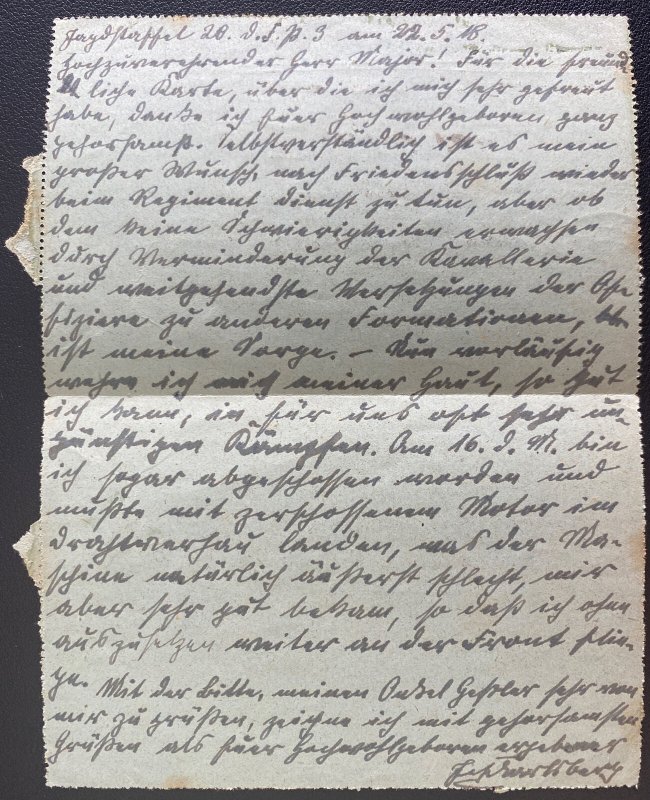 Jagdstaffel 26. d. F. P. 3 am 22. 5. 18.
Hochzuverehrender Herr Major! Für die freund-
liche Karte, über die ich mich sehr gefreut
habe, danke ich Euer Hochwohlgeboren ganz
gehorsamst. Selbstverständlich ist es mein
großer Wunsch, nach Friedensschluß wieder
beim Regiment Dienst zu tun, aber ob
dem keine Schwierigkeiten erwachsen
durch Verminderung der Kavallerie
und weitgehendste Versetzungen der Offi-
ziere zu anderen Formationen,
ist meine Sorge. – Nun vorläufig
wehre ich mich meiner Haut, so gut
ich kann, in für uns oft sehr un-
günstigen Kämpfen. Am 16. d. M. bin
ich sogar abgeschossen worden und
mußte mit zerschossenem Motor im
Drachtverhau landen, was der Ma-
schine natürlich äußerst schlecht, mir
aber sehr gut bekam, so daß ich ohne
auszusetzen weiter an der Front flie-
ge.
Mit der Bitte, meinen Onkel Geßler sehr von
mir zu grüßen, zeichne ich mit gehorsamsten
Grüßen als Euer Hochwohlgeboren ergebener